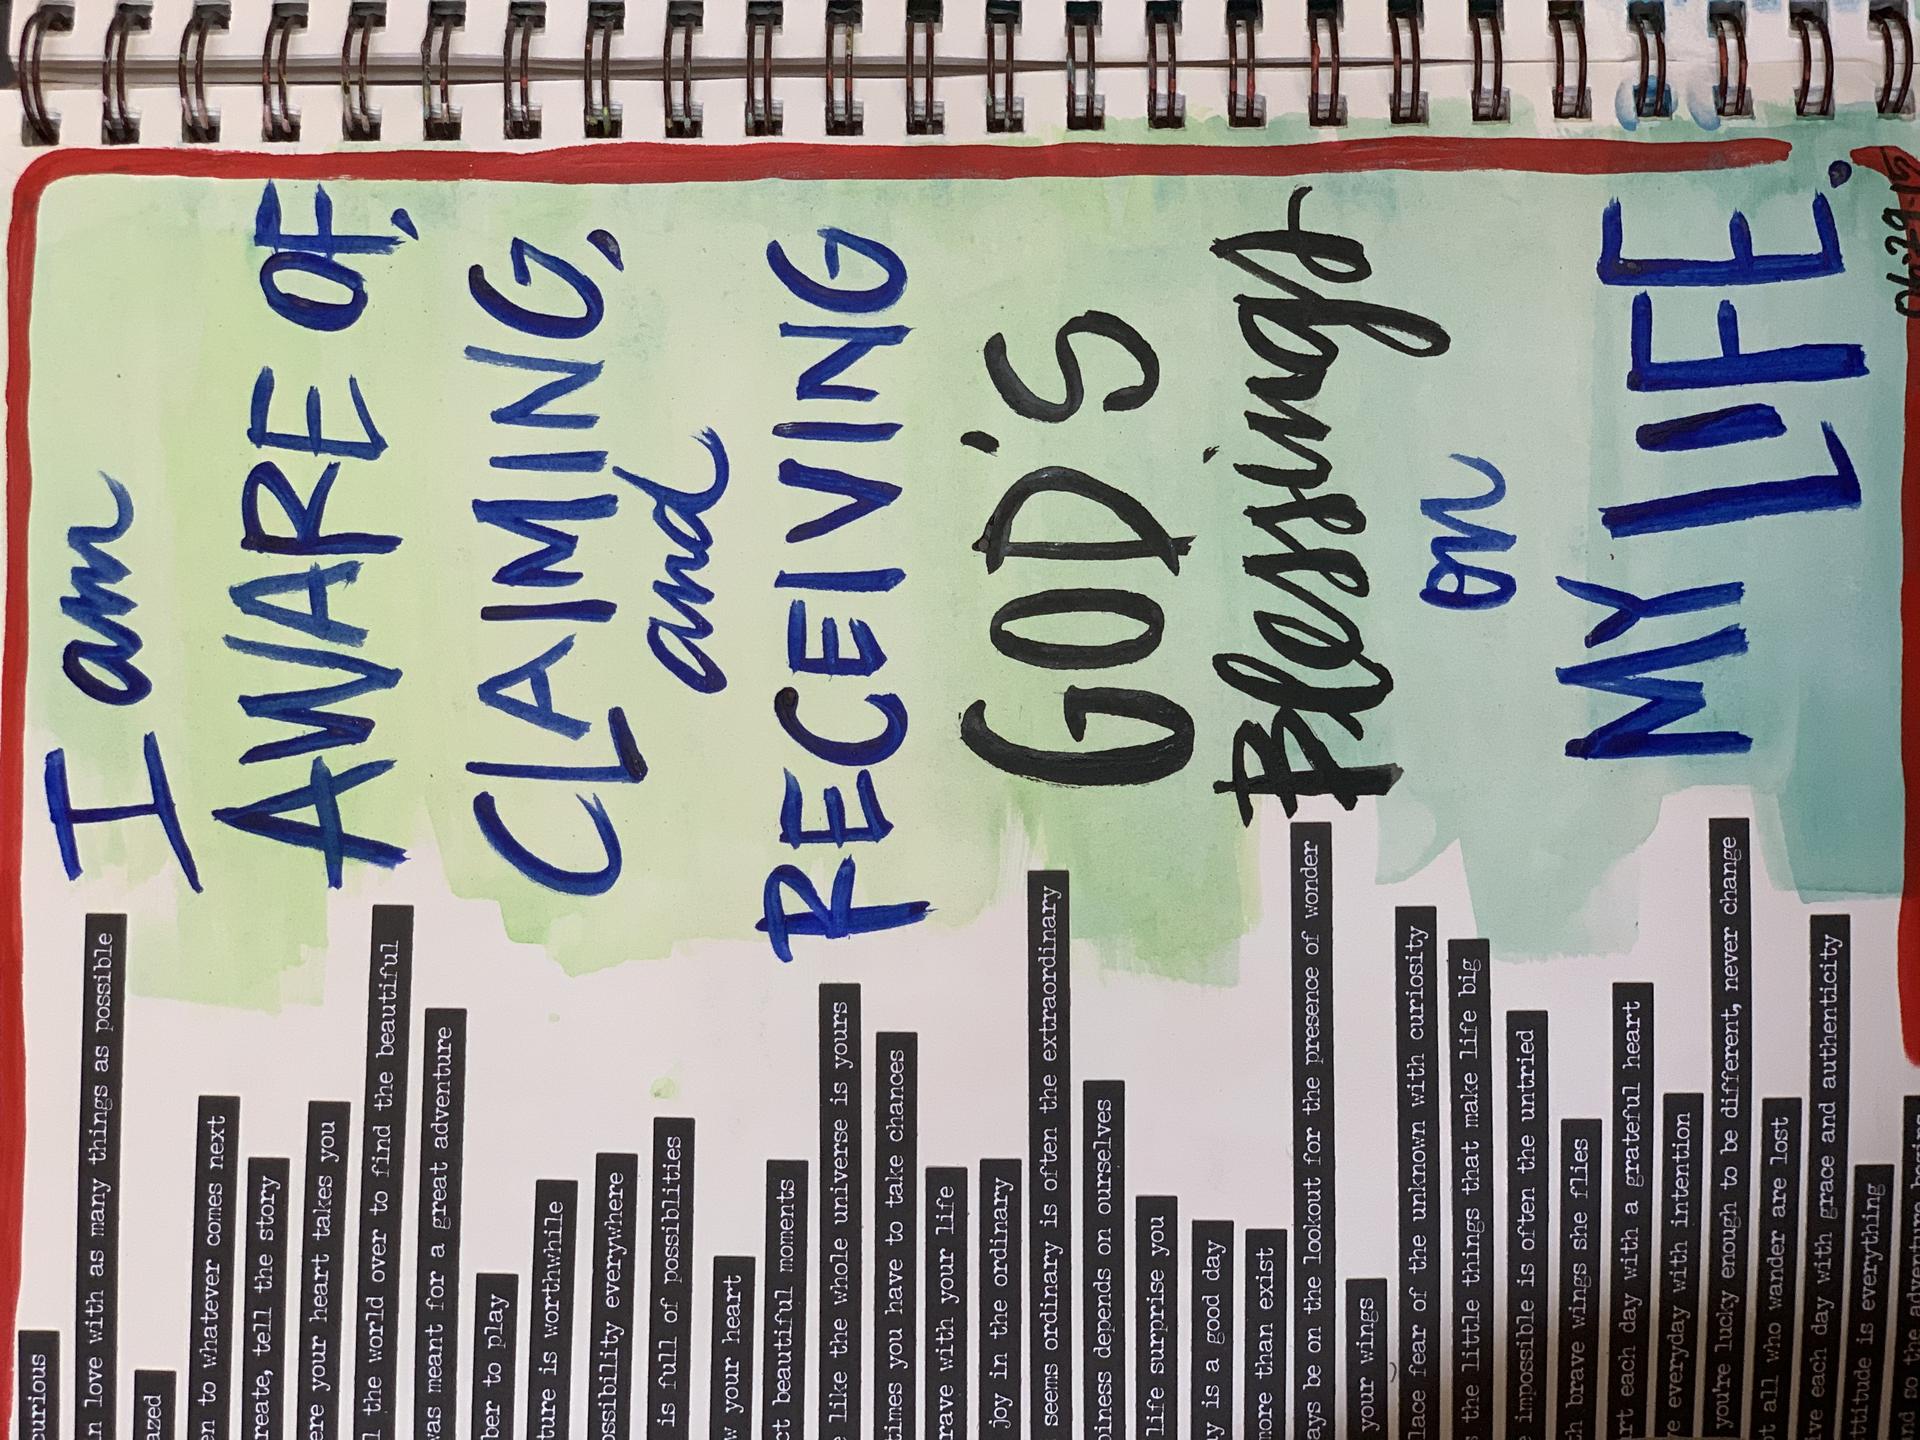 I am
AWARE OF,
CLAIMING,
and
RECEIVING
GOD'S
Blessings
on
MY LIFE.
06-29-15
curious
in love with as many things as possible
to whatever comes next
tell the story
your heart takes you
the world over to find the beautiful
was meant for a great adventure
to play
is worthwhile
everywhere
is full of possiblities
your heart
beautiful moments
like the whole universe is yours
you have to take chances
with your life
joy in the ordinary
seems ordinary is often the extraordinary
depends on ourselves
life surprise you
is a good day
more than exist
be on the lookout for the presence of wonder
your wings
fear of the unknown with curiosity
the little things that make life big
impossible is often the untried
brave wings she flies
each day with a grateful heart
everyday with intention
you're lucky enough to be different, never change
all who wander are lost
each day with grace and authenticity
is everything
so the adventure begins